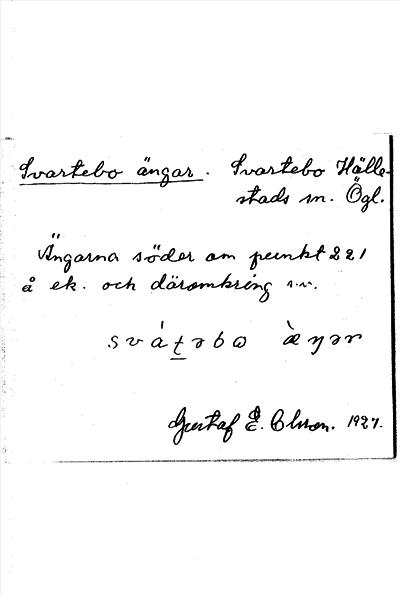 Svartebo ängar. Svartebo Hälle-
stads sn. Ögl.
Ängarna söder om punkt 221
å ek. och däromkring s.v.
svát̲əbω æ̀ŋər
Gustaf E. Olsson. 1927.